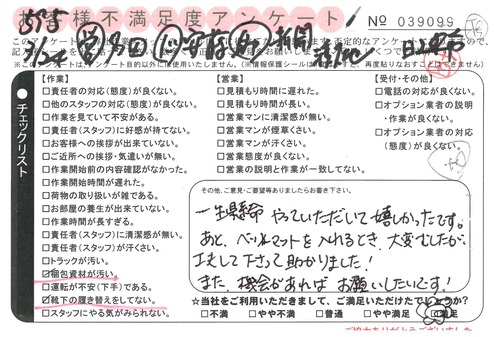 お客様不満足度アンケート
No 039099
※このアンケートは、アンケート目的以外には使用いたしません。(※情報保護シールは
【作業】
□責任者の対応(態度)が良くない。
□他のスタッフの対応(態度)が良くない。
□作業を見ていて不安がある。
□責任者(スタッフ)に好感が持てない。
□お客様への挨拶が出来ていない。
□ご近所への挨拶・気遣いが無い。
□作業開始前の内容確認がなかった。
□作業開始時間が遅れた。
□荷物の取り扱いが雑である。
□お部屋の養生が出来ていない。
□作業時間が長すぎる。
□責任者(スタッフ)に清潔感が無い。
□責任者(スタッフ)が汗くさい。
□トラックが汚い。
☑梱包資材が汚い。
□運転が不安(下手)である。
☑靴下の履き替えをしてない。
□スタッフにやる気がみられない。
【営業】
□見積もり時間に遅れた。
□見積もり時間が長い。
□営業マンに清潔感が無い。
□営業マンが煙草くさい。
□営業マンが汗くさい。
□営業態度が良くない。
□営業の説明と作業が一致してない。
【受付・その他】
□電話の対応が良くない。
□オプション業者の説明
・作業が良くない。
□オプション業者の対応
(態度)が良くない。
チェックリスト
その他、ご意見・ご要望等ありましたらお書き下さい。
一生懸命 やっていただいて嬉しかったです。
あと、ベッドマットを入れるとき、大変でしたが、
工夫して下さって助かりました!
また、機会があれば お願いしたいです!
☆当社をご利用いただきまして、ご満足いただけたでしょうか?
□不満 □やや不満 □普通 □やや満足 □満足
ご協力ありがとうございました